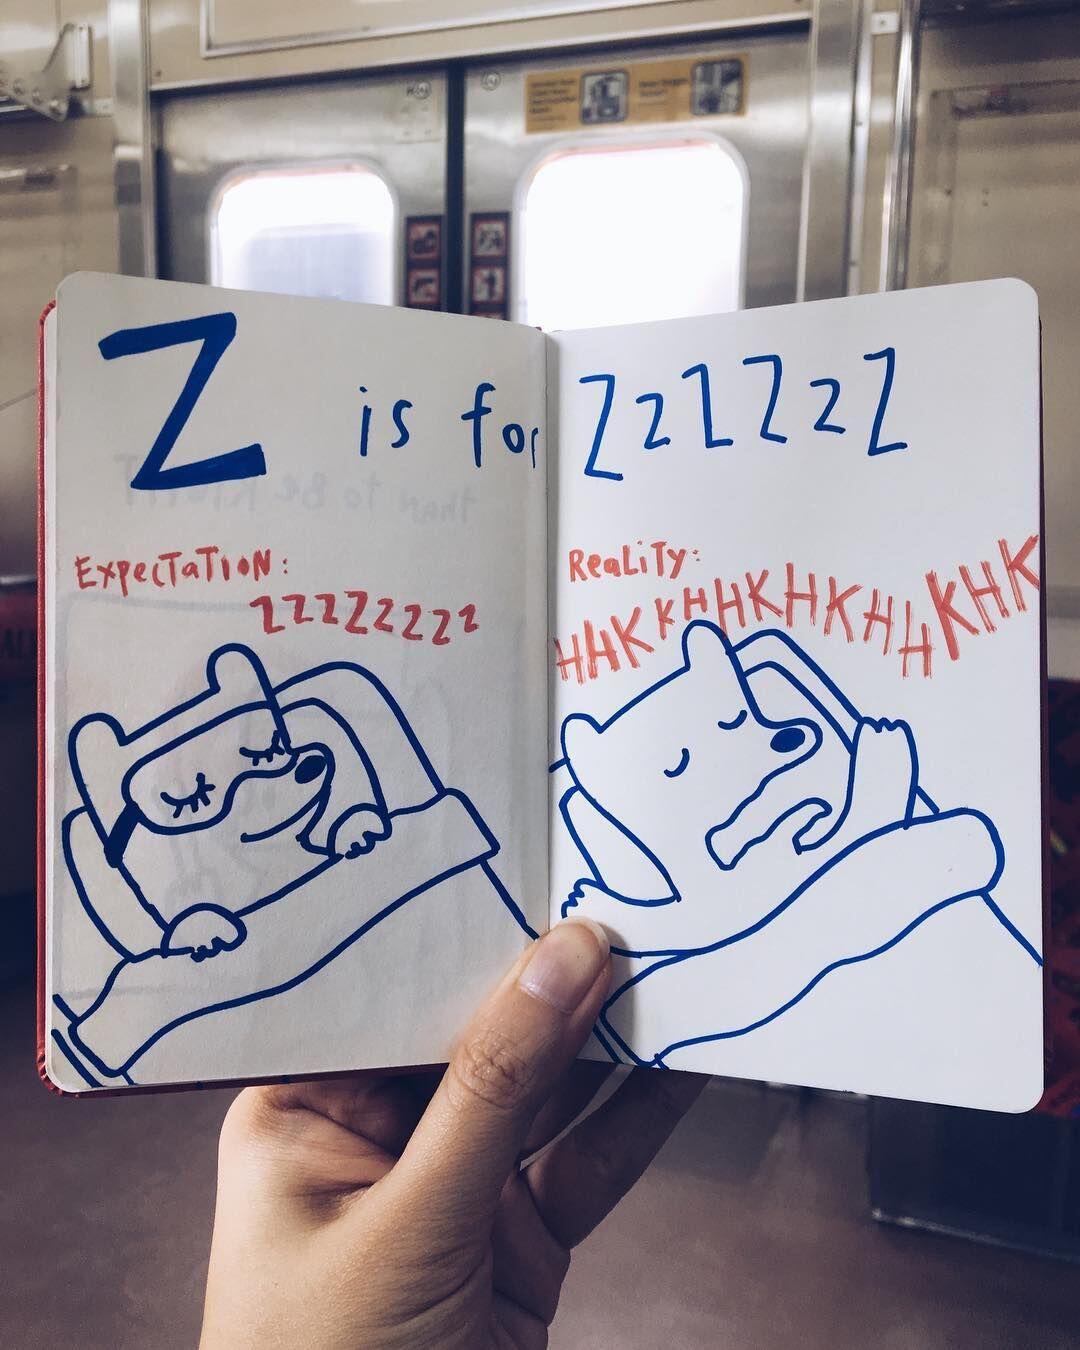 Z is for ZzZZzZ
ExpecTaTioN:
ZZZZZZZZ
ReaLiTy:
HHKKHHKHKHHKHK